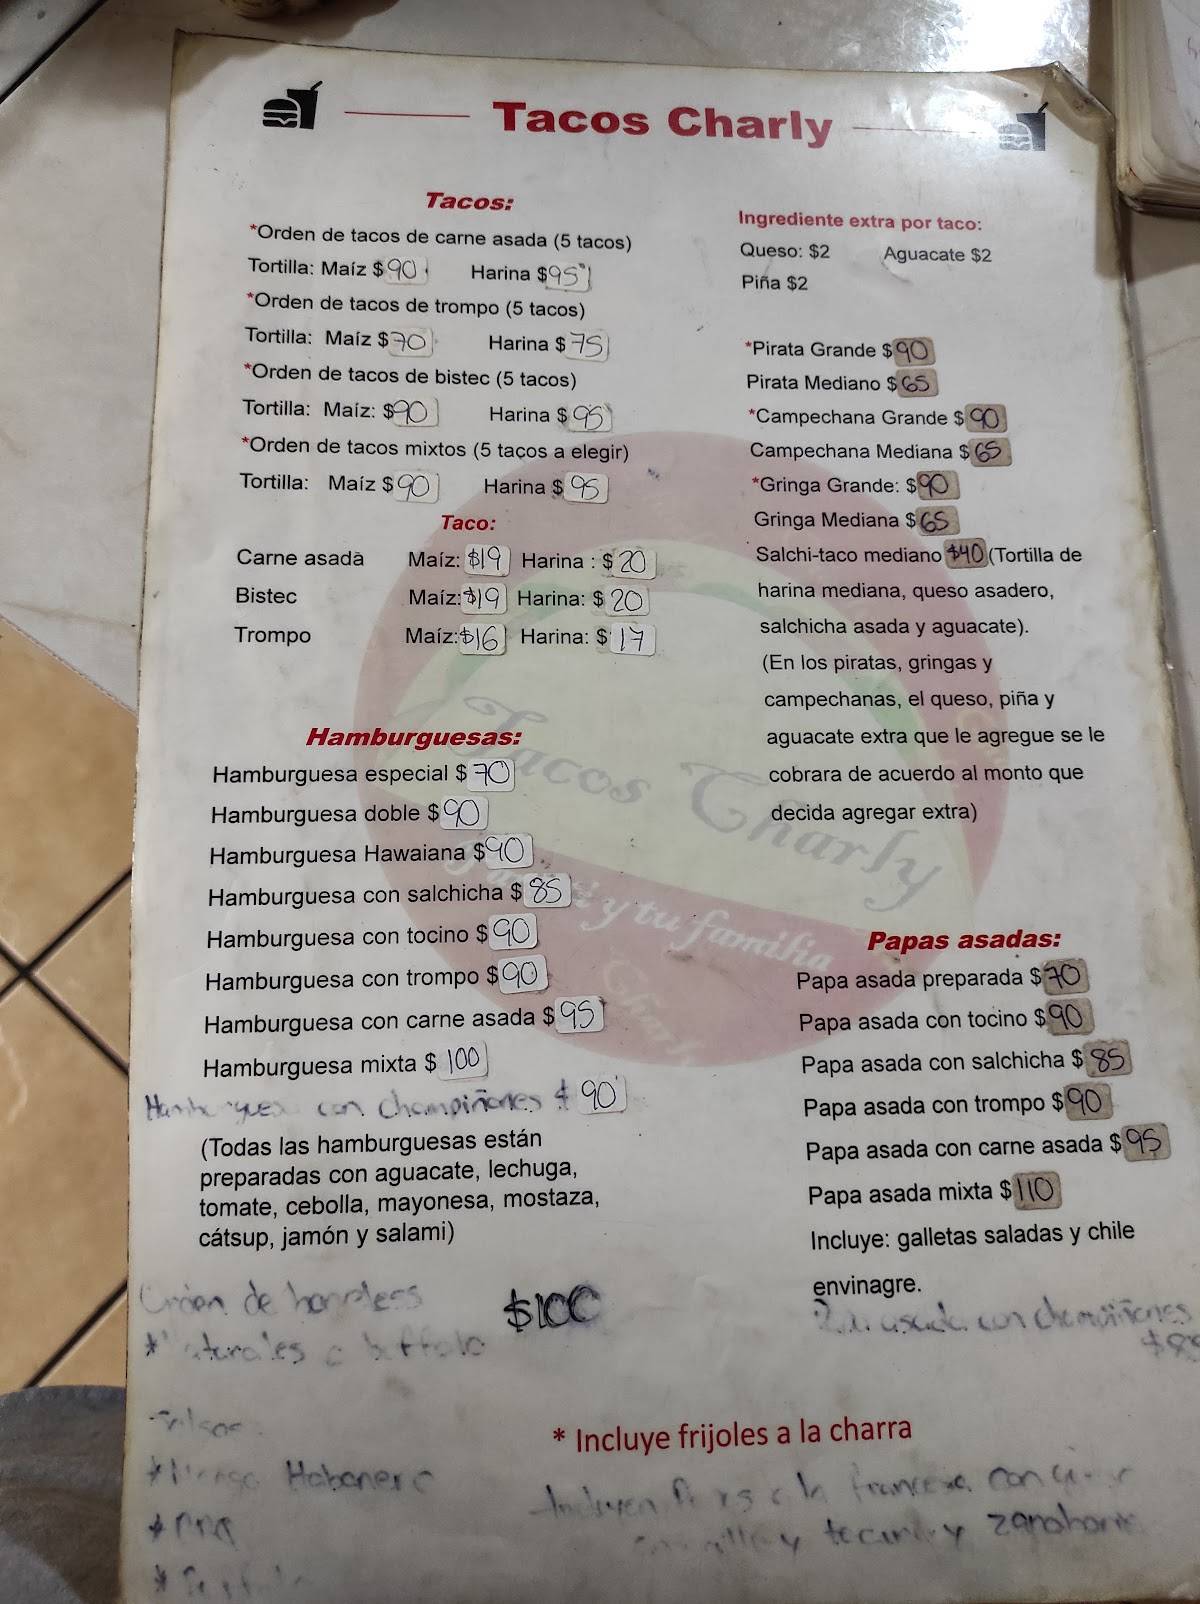 Tacos Charly
Tacos:
*Orden de tacos de carne asada (5 tacos)
Tortilla: Maíz $90 Harina $95
*Orden de tacos de trompo (5 tacos)
Tortilla: Maíz $70 Harina $75
*Orden de tacos de bistec (5 tacos)
Tortilla: Maíz: $90 Harina $95
*Orden de tacos mixtos (5 tacos a elegir)
Tortilla: Maíz $90 Harina $95
Taco:
Carne asada Maíz: $19 Harina : $20
Bistec Maíz: $19 Harina: $20
Trompo Maíz: $16 Harina: $17
Hamburguesas:
Hamburguesa especial $70
Hamburguesa doble $90
Hamburguesa Hawaiana $90
Hamburguesa con salchicha $85
Hamburguesa con tocino $90
Hamburguesa con trompo $90
Hamburguesa con carne asada $95
Hamburguesa mixta $100
Hamburguesa con champiñones $90
(Todas las hamburguesas están
preparadas con aguacate, lechuga,
tomate, cebolla, mayonesa, mostaza,
cátsup, jamón y salami)
Orden de boneless $100
*Naturales o buffalo
*Mango Habanero
*BBQ
Ingrediente extra por taco:
Queso: $2 Aguacate $2
Piña $2
*Pirata Grande $90
Pirata Mediano $65
*Campechana Grande $90
Campechana Mediana $65
*Gringa Grande: $90
Gringa Mediana $65
Salchi-taco mediano $40 (Tortilla de
harina mediana, queso asadero,
salchicha asada y aguacate).
(En los piratas, gringas y
campechanas, el queso, piña y
aguacate extra que le agregue se le
cobrara de acuerdo al monto que
decida agregar extra)
Papas asadas:
Papa asada preparada $70
Papa asada con tocino $90
Papa asada con salchicha $85
Papa asada con trompo $90
Papa asada con carne asada $95
Papa asada mixta $110
Incluye: galletas saladas y chile
envinagre.
Papa asada con champiñones
* Incluye frijoles a la charra
Incluyen a la francesa con
y zanahoria
Tacos Charly
y tu familia